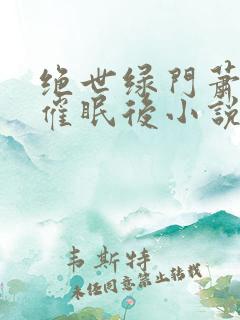 绝世绿門蕭
催眠後小說
韦斯特
未经同意禁止转载